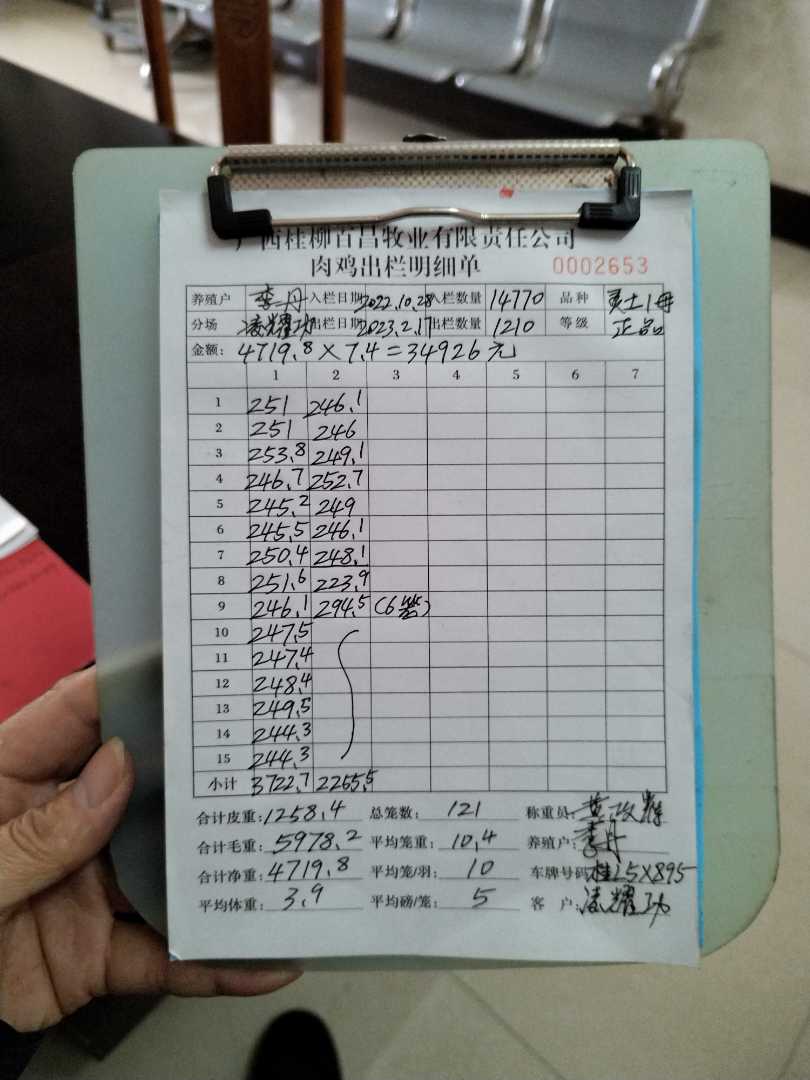 广西桂柳百昌牧业有限责任公司
肉鸡出栏明细单 0002653
养殖户 李丹 入栏日期 2022.10.28 入栏数量 14770 品种 贵土1母
分场 凌耀功 出栏日期 2023.2.17 出栏数量 1210 等级 正品
金额: 4719.8×7.4=34926元
1 2 3 4 5 6 7
1 251 246.1
2 251 246
3 253.8 249.1
4 246.7 252.7
5 245.2 249
6 245.5 246.1
7 250.4 248.1
8 251.6 223.9
9 246.1 294.5 (6笼)
10 247.5
11 247.4
12 248.4
13 249.5
14 244.3
15 244.3
小计 3722.7 2255.5
合计皮重: 1258.4 总笼数: 121 称重员: 黄政辉
合计毛重: 5978.2 平均笼重: 10.4 养殖户: 李丹
合计净重: 4719.8 平均笼/羽: 10 车牌号码: 桂L5X895
平均体重: 3.9 平均磅/笼: 5 客户: 凌耀功